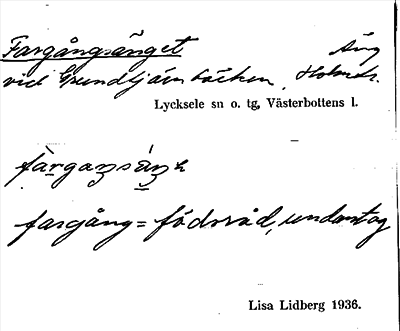 Fargångsänget Äng
vid Grundtjärnbäcken, Holmtr.
Lycksele sn o. tg, Västerbottens l.
fargång = födoråd, undantag
Lisa Lidberg 1936.